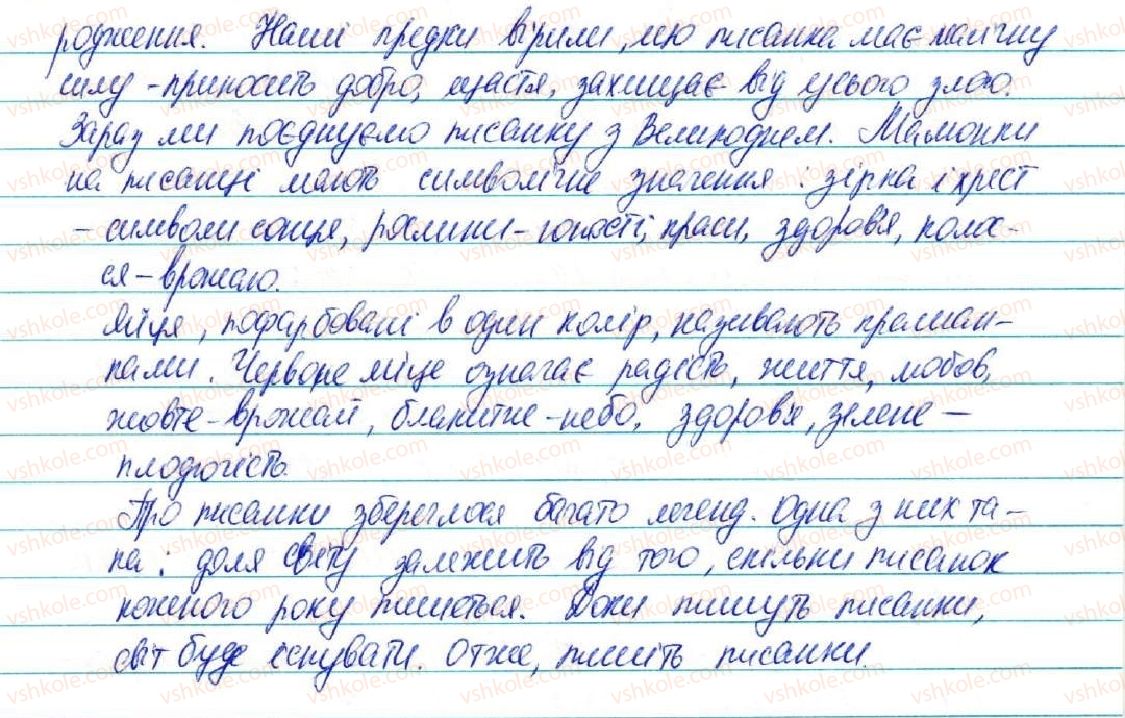 родження. Наші предки вірили, що писанка має магічну
силу - приносить добро, щастя, захищає від усього злого.
Зараз ми поєднуємо писанку з Великоднем. Малюнки
на писанці мають символічне значення: зірка і хрест
- символи сонця, рослини - юності, краси, здоров'я, коло-
ся - врожаю.
Яйця, пофарбовані в один колір, називають крашан-
ками. Червоне яйце означає радість, життя, любов,
жовте - врожай, блакитне - небо, здоров'я, зелене -
плодючість.
Про писанки збереглося багато легенд. Одна з них та-
ка: доля світу залежить від того, скільки писанок
кожного року пишеться. Доки пишуть писанки,
світ буде існувати. Отже, пишіть писанки.
vshkole.com